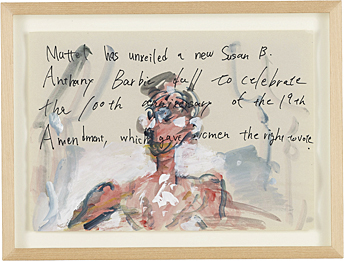 Mattel has unveiled a new Susan B.
Anthony Barbie doll to celebrate
the 100th anniversary of the 19th
Amendment, which gave women the right to vote.